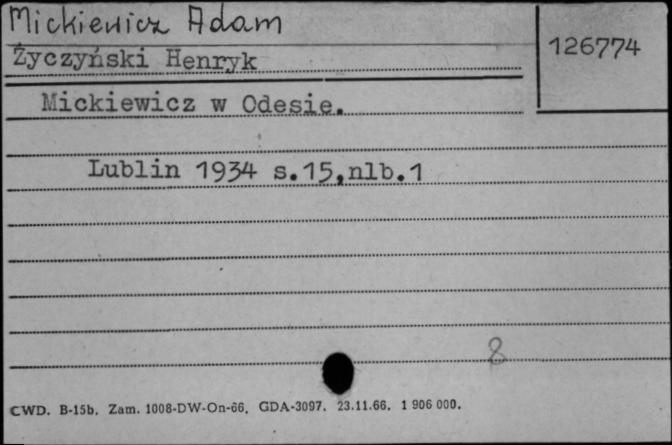 Mickiewicz Adam
126774
Życzyński Henryk
Mickiewicz w Odesie.
Lublin 1934 s.15,nlb.1
8
CWD. B-15b. Zam. 1008-DW-On-66. GDA-3097. 23.11.66. 1 906 000.